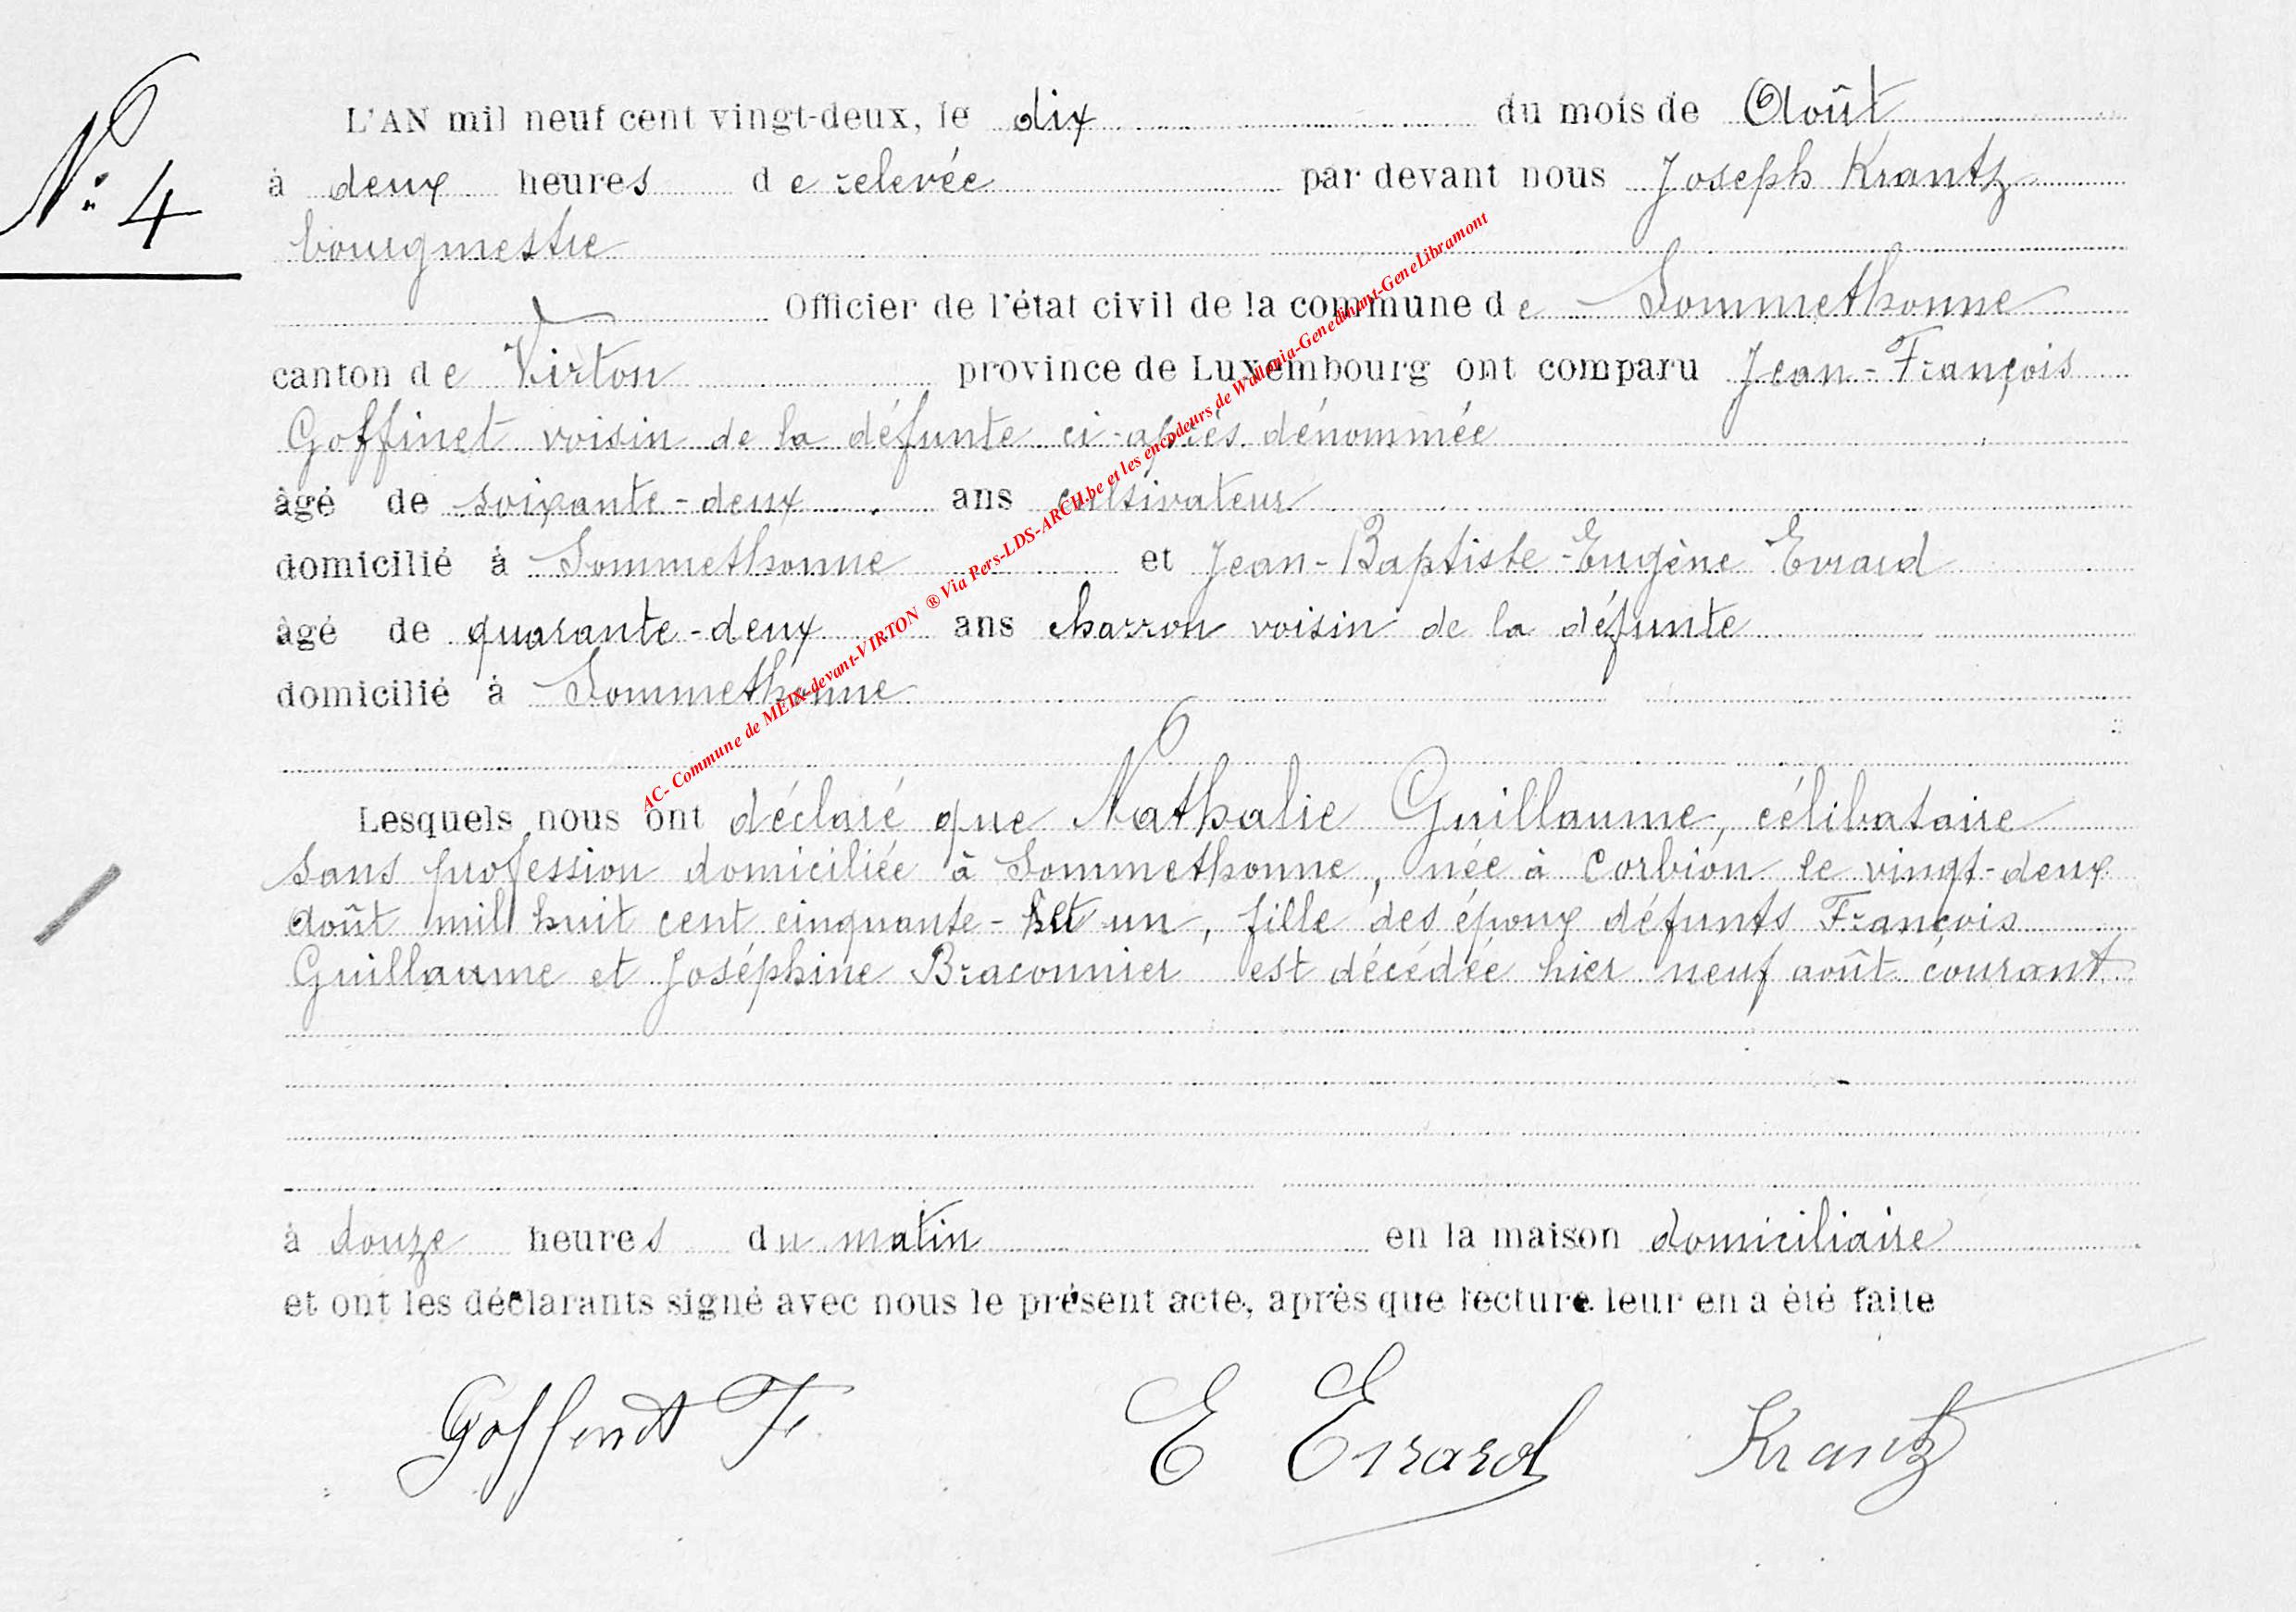 N° 4
L'AN mil neuf cent vingt-deux, le dix du mois de Août
à deux heures de relevée par devant nous Joseph Krantz
bourgmestre
Officier de l'état civil de la commune de Sommethonne
canton de Virton province de Luxembourg ont comparu Jean-François
Goffinet voisin de la défunte ci-après dénommée
âgé de soixante-deux ans cultivateur
domicilié à Sommethonne et Jean-Baptiste-Eugène Evrard
âgé de quarante-deux ans charron voisin de la défunte
domicilié à Sommethonne
Lesquels nous ont déclaré que Nathalie Guillaume, célibataire
sans profession domiciliée à Sommethonne, née à Corbion le vingt-deux
août mil huit cent cinquante- et un, fille des époux défunts François
Guillaume et Joséphine Braconnier est décédée hier neuf août courant
à douze heures du matin en la maison domiciliaire
et ont les déclarants signé avec nous le présent acte, après que lecture leur en a été faite
Goffinet F. E Evrard Krantz
AC- Commune de MEIX-devant-VIRTON ® Via Pers-LDS-ARCH.be et les encodeurs de Wallonia-Genedinant-GeneLibramont